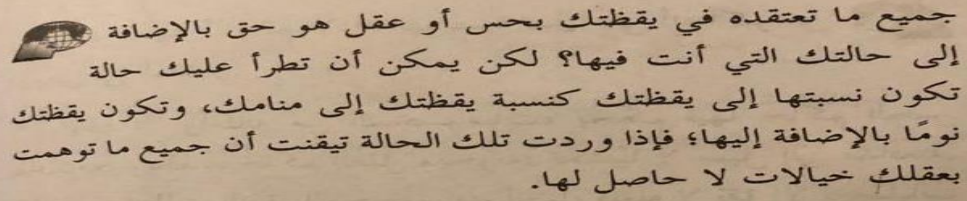 جميع ما تعتقده في يقظتك بحس أو عقل هو حق بالإضافة
إلى حالتك التي أنت فيها؟ لكن يمكن أن تطرأ عليك حالة
تكون نسبتها إلى يقظتك كنسبة يقظتك إلى منامك، وتكون يقظتك
نومًا بالإضافة إليها؛ فإذا وردت تلك الحالة تيقنت أن جميع ما توهمت
بعقلك خيالات لا حاصل لها.